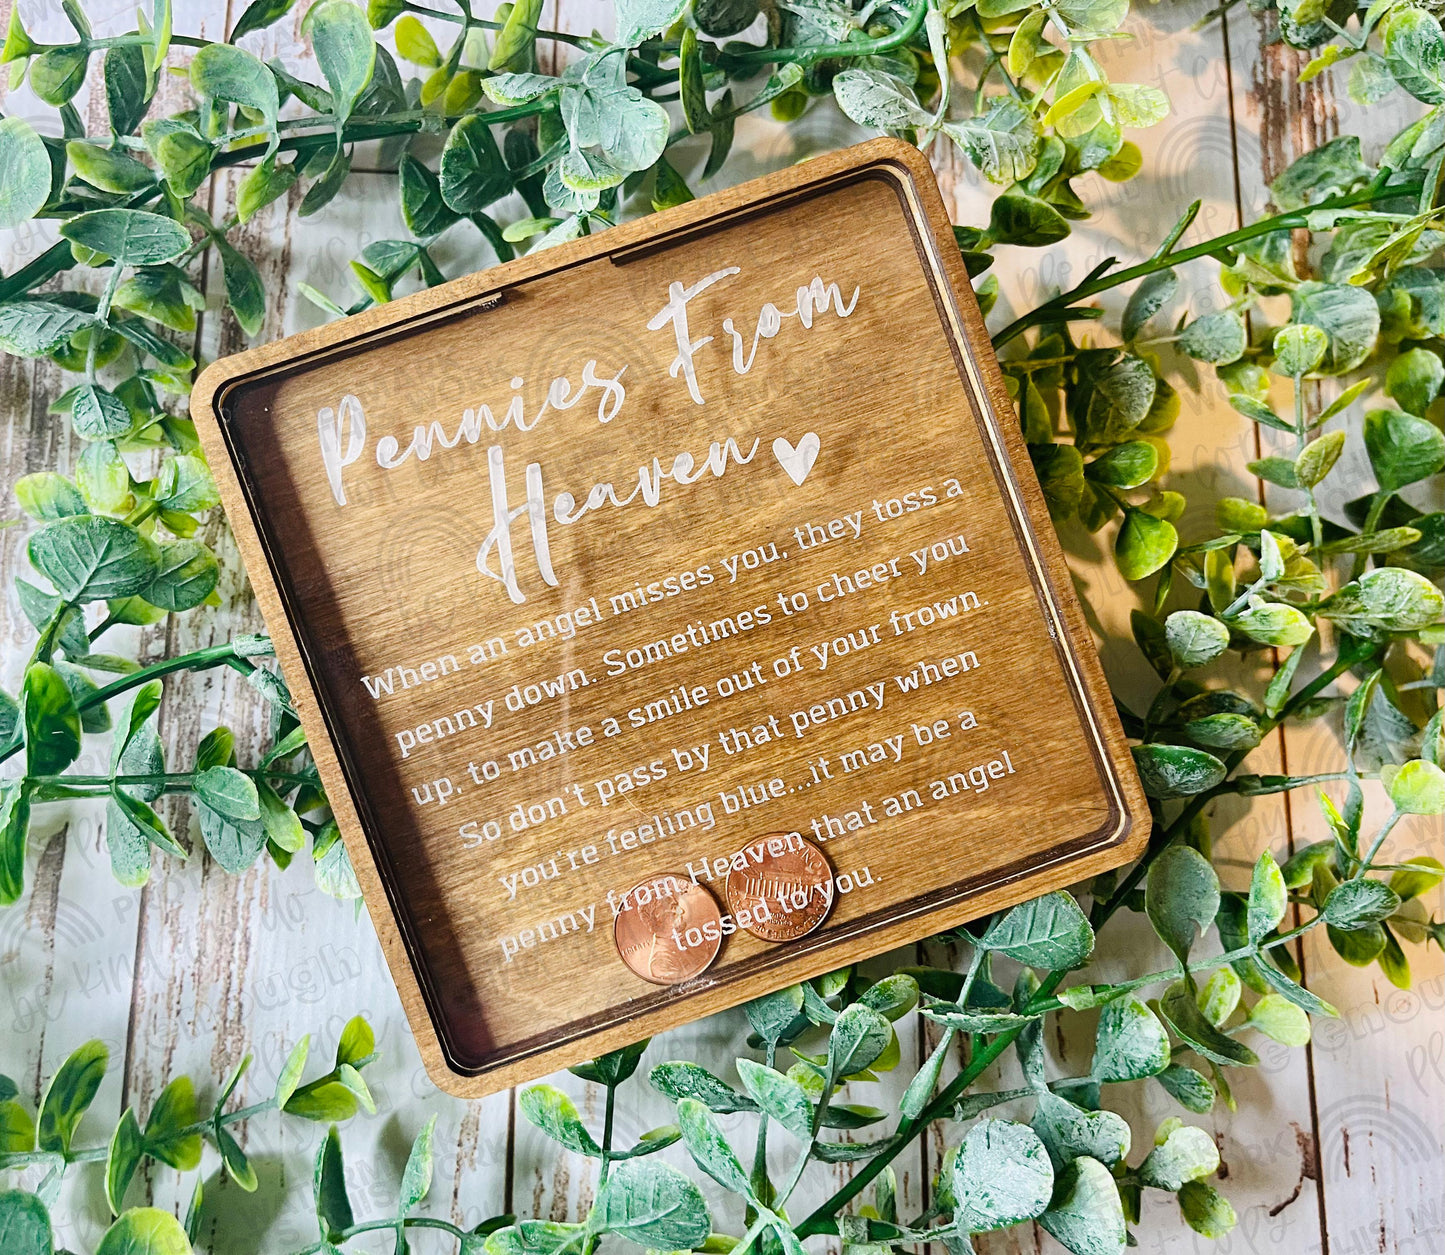 Pennies From
Heaven
When an angel misses you, they toss a
penny down. Sometimes to cheer you
up, to make a smile out of your frown.
So don't pass by that penny when
you're feeling blue...it may be a
penny from Heaven that an angel
tossed to you.